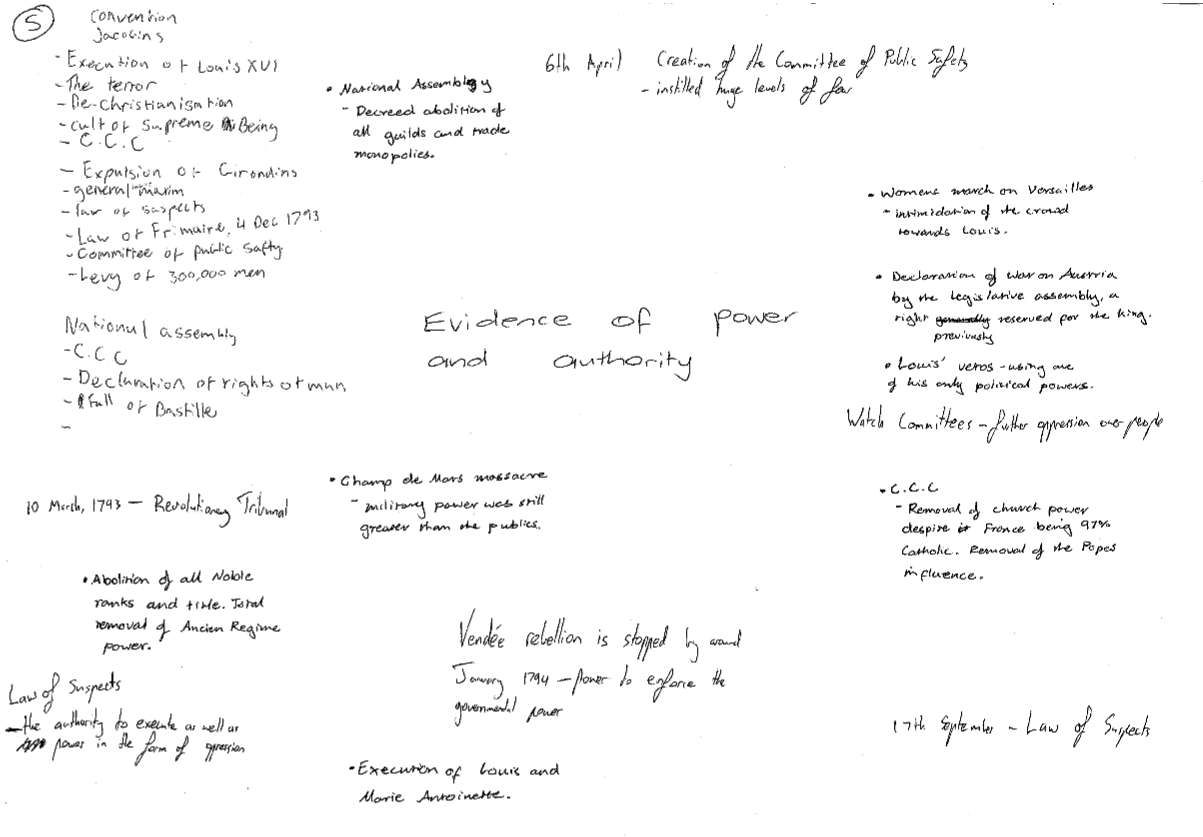 5
Convention
Jacobins
- Execution of Louis XVI
- The terror
- De-Christianisation
- cult of Supreme Being
- C.C.C
- Expulsion of Girondins
- general maxim
- law of suspects
- Law of Frimaire, 4 Dec 1793
- Committee of public safty
- Levy of 300,000 men
• National Assembly
- Decreed abolition of
all guilds and trade
monopolies.
6th April Creation of the Committee of Public Safety
- instilled huge levels of fear
• Womens march on Versailles
- intimidation of the crowd
towards Louis.
• Declaration of war on Austria
by the legislative assembly, a
right generally reserved for the king.
previously
• Louis' vetos - using one
of his only political powers.
Watch Committees - further oppression over people
National assembly
- C.C.C
- Declaration of rights of man
- Fall of Bastille
-
Evidence of power
and authority
10 March, 1793 - Revolutionary Tribunal
• Champ de Mars massacre
- military power was still
greater than the publics.
• C.C.C
- Removal of church power
despite it France being 97%
Catholic. Removal of the Popes
influence.
• Abolition of all Noble
ranks and title. Total
removal of Ancien Regime
power.
Law of Suspects
- the authority to execute as well as
power in the form of oppression
Vendée rebellion is stopped by around
January 1794 - power to enforce the
governmental power
17th September - Law of Suspects
• Execution of Louis and
Marie Antoinette.